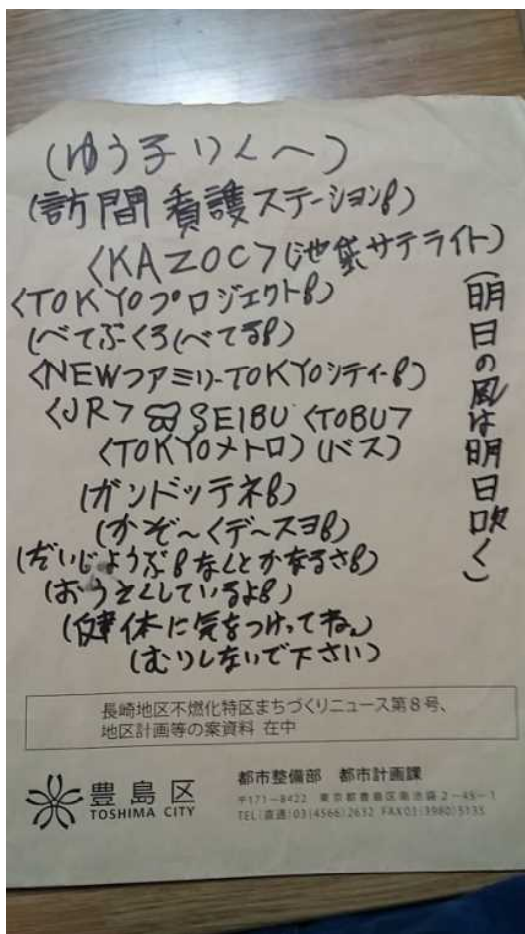 (ゆう子りんへ)
(訪問看護ステーション8)
<KAZOC>(池袋サテライト)
<TOKYOプロジェクト8)
(べてぶくろ(べてる8)
<NEWファミリーTOKYOシティー8)
<JR> SEIBU <TOBU>
<TOKYOメトロ) (バス)
(ガンドッテネ8)
(かぞ~くデ~スヨ8)
(だいじょうぶ8なんとかなるさ8)
(おうえんしているよ8)
(健体に気をつけってね。)
(むりしないで下さい)
(明日の風は明日吹く)
長崎地区不燃化特区まちづくりニュース第8号、
地区計画等の案資料 在中
豊島区
TOSHIMA CITY
都市整備部 都市計画課
〒171-8422 東京都豊島区南池袋2-45-1
TEL(直通)03(4566)2632 FAX03(3980)5135